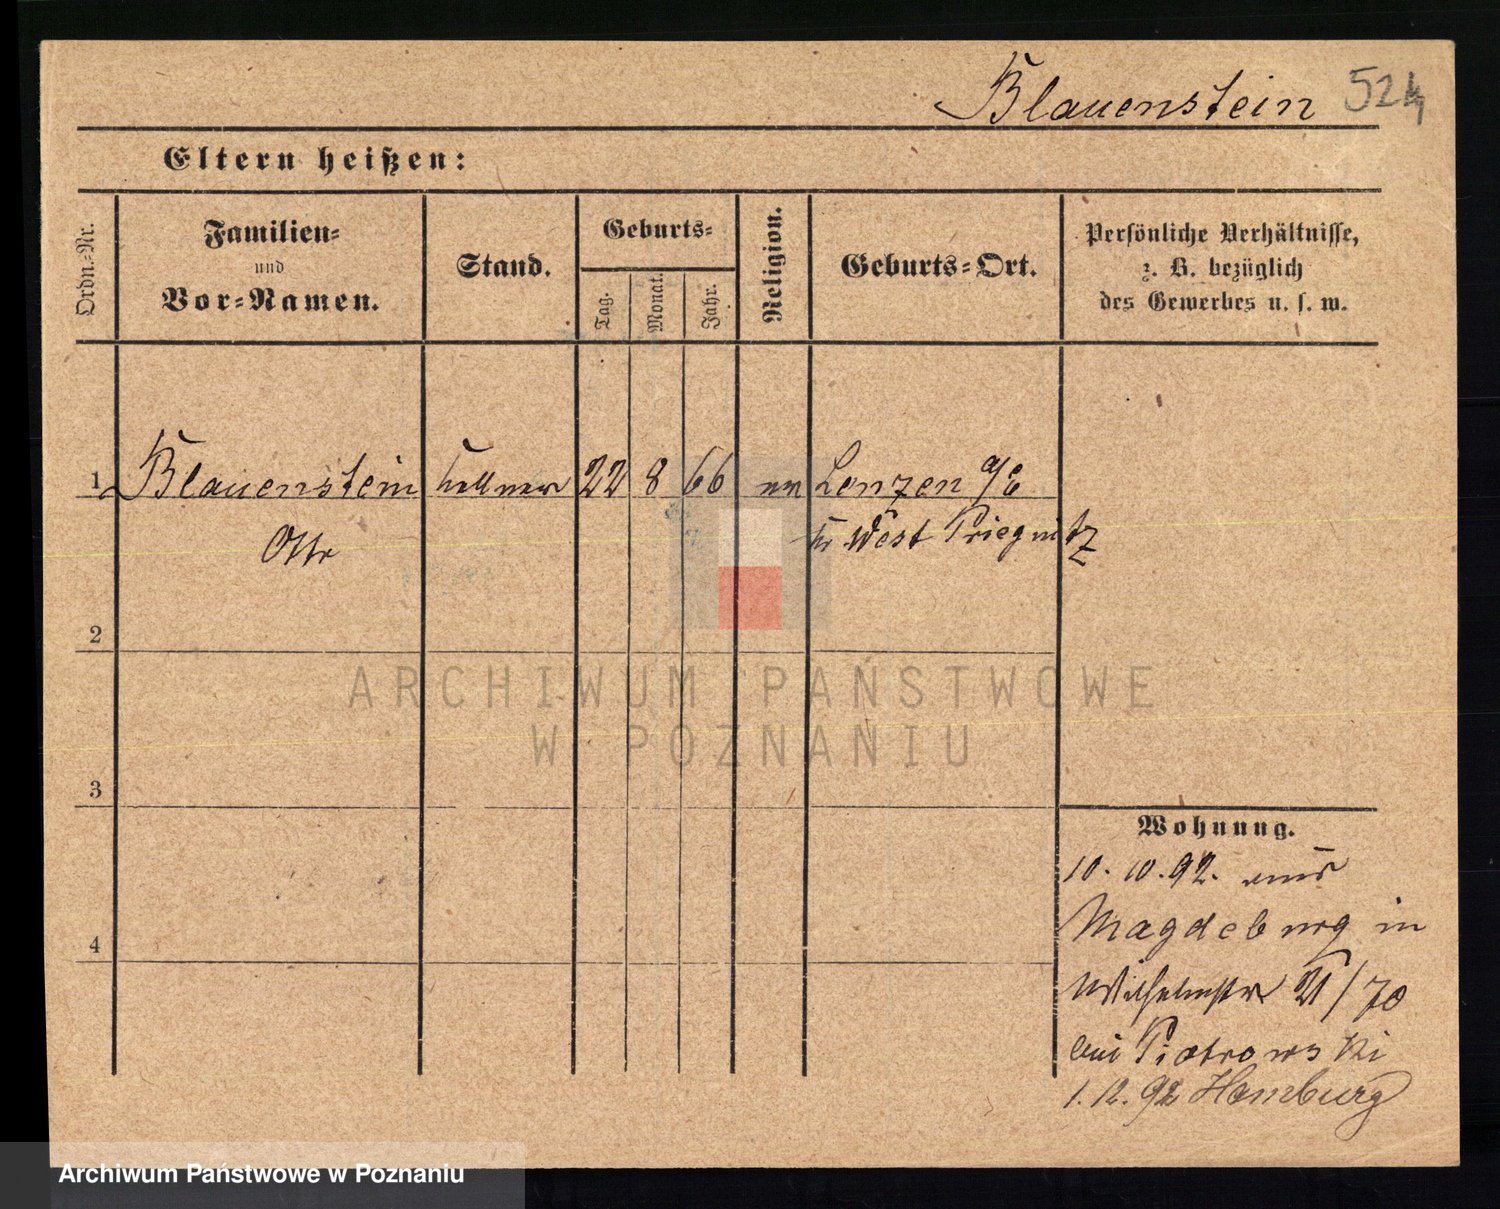 Blauenstein 524
Eltern heißen:
Ordn.-Nr.
Familien-
und
Vor-Namen.
Stand.
Geburts-
Tag.
Monat.
Jahr.
Religion.
Geburts-Ort.
Persönliche Verhältnisse,
z. B. bezüglich
des Gewerbes u. s. w.
1 Blauenstein Kellner 22 8 66 ev Lenzen a/E
Otto Kr West Priegnitz
2
3
4
Wohnung.
10. 10. 92. aus
Magdeburg in
Wilhelmstr /70
bei Piotrowski
1. 12. 92 Hamburg
ARCHIWUM PAŃSTWOWE
W POZNANIU
Archiwum Państwowe w Poznaniu